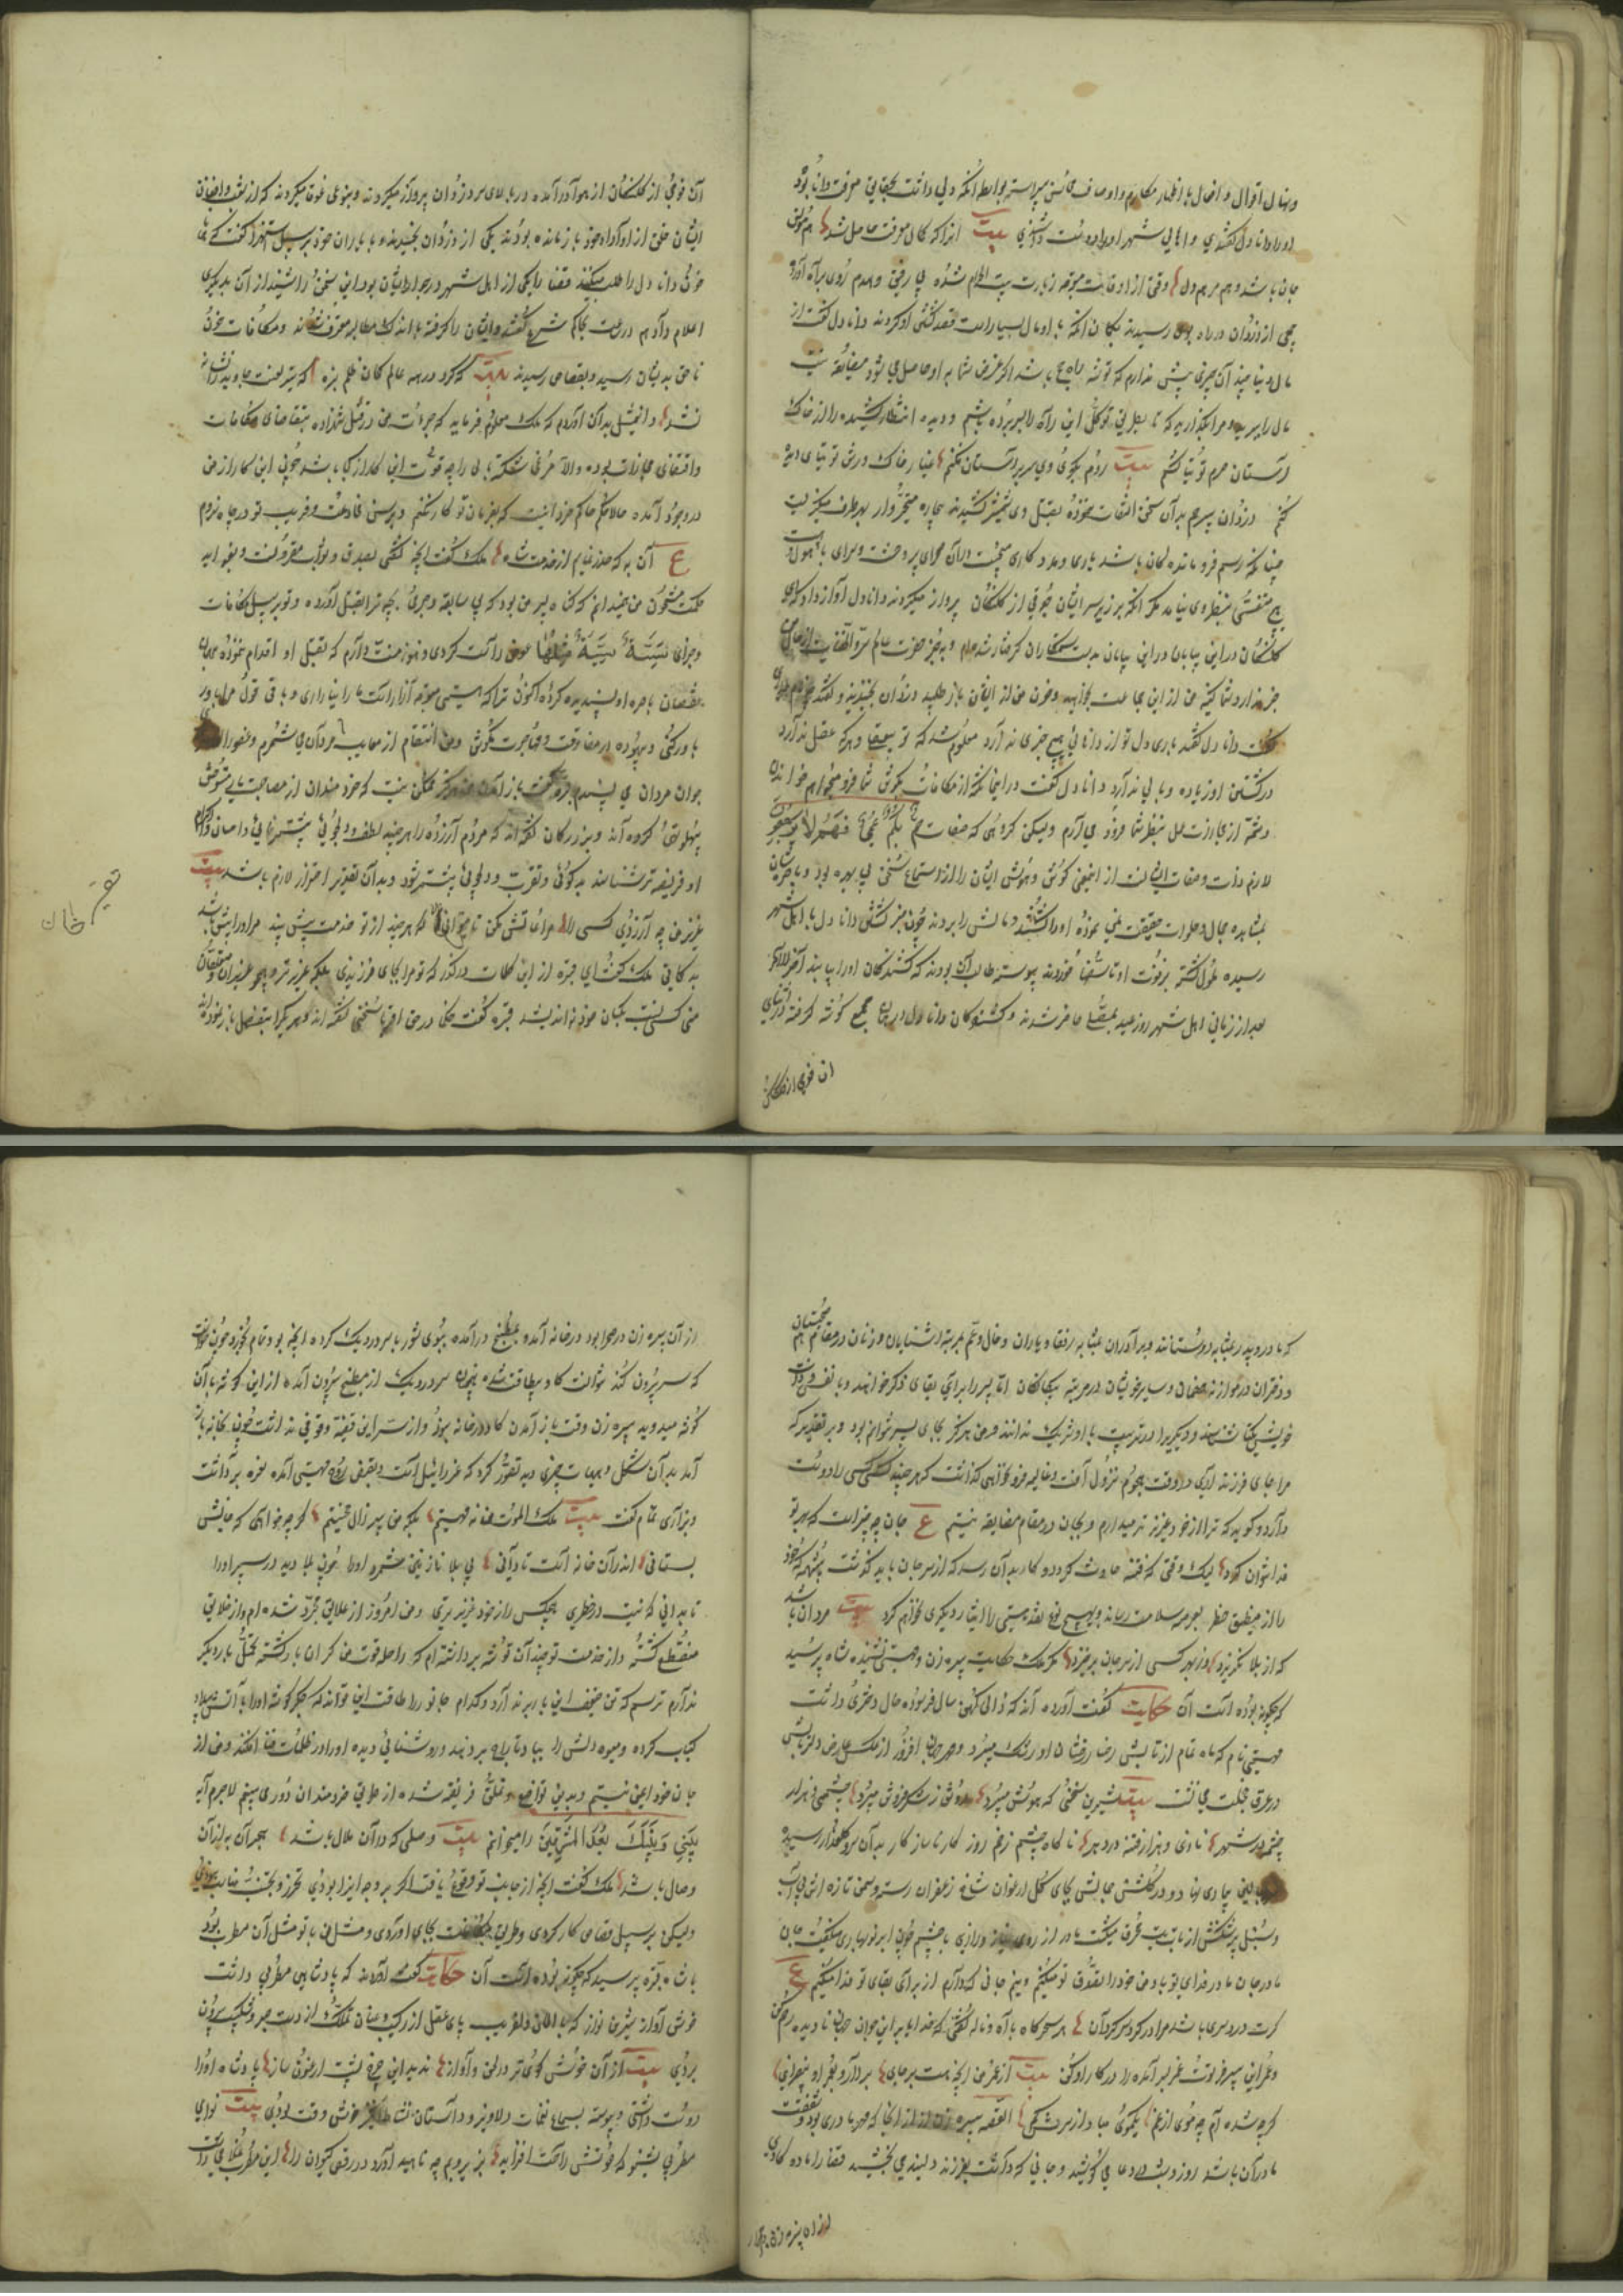 و نهال اقوال و افعال باظهار مکارم اوصاف محاسن پیراسته بواسطه آنکه دلی داشت بحقایق معرفت دانا بود
او را دانا دل گفتندی و اهالی شهر او را دوست داشتندی بیت آنرا که کمال معرفت حاصل شد هم مونس
جان باشد و هم مرهم دل وقتی از اوقات متوجه زیارت بیت الحرام شده بی رفیق و همدم روی براه آورد
جمعی از دزدان در راه بوی رسیدند بگمان آنکه با او مال بسیار است قصد کشتن او کردند دانا دل گفت از
مال دنیا چند آن چیزی بیش ندارم که توشه راه حج باشد اگر غرض شما به او حاصل می شود مضایقه نیست
مال را ببرید و مرا بگذارید که تا بطریق توکل این راه را بسر برده باشم و دیده انتظار کشیده را از خاک
آستان حرم توتیا کشم بیت روم بکوی وی سر بر آستان نهم غبار خاک درش توتیای دیده
کنم دزدان بیرحم بدان سخن التفات ننموده بقتل وی شمشیر کشیدند بیچاره متحیر وار بهر طرف مینگریست
چنانکه رسم فرو مانده گان باشد یاری و مدد کاری میجست در آن صحرای پر وحشت و سرای با هول
هیچ متنفسی بنظر وی نیامد مگر آنکه بر زبر سر ایشان جوقی از کلنگان پرواز میکردند دانا دل آواز داد که ای
کلنگان در این بیابان بدست ستمکاران گرفتار شده ام و بجز حضرت عالم السر و الخفیات از حال من
خبر ندارد شما کینه من از این جماعت بخواهید و خون من از ایشان باز طلبید دزدان بخندیدند و گفتند چه نام داری
گفت دانا دل گفتند باری دل تو از دانایی هیچ خبری ندارد معلوم شد که تو بی عقلی و هر که عقل ندارد
در کشتن او زیاده وبالی ندارد دانا دل گفت در اینجا نکته از مکافات بگوش شما فرو میخوانم
و شمه از مجازات عمل بنظر شما فرود می آرم ولیکن گروهی که صفات صم بکم عمی فهم لا یعقلون
لازم ذات و صفات ایشانست از اینمعنی گوش و هوش ایشان را از استماع سخن بی بهره بود
بمشاهده جمال و حلاوت حقیقت نمی نموده او را بکشتند و مالش را بردند چون خبر کشتن دانا دل باهل شهر
رسید ملول گشته بر فوت او تاسفها خوردند پیوسته طالب آن بودند که کشندگان او را بیابند آخر الامر
بعد از زمانی اهل شهر روز عید بمصلا حاضر شدند و کشندگان دانا دل در آن مجمع گوشه گرفته در اثنای
آن فوجی از کلنگان
آن فوجی از کلنگان از هوا در آمده در بالای سر دزدان پرواز میکردند و بنوعی غوغا میکردند که از شغب و افغان
ایشان خلق از اوراد خود باز مانده بودند یکی از دزدان بخندید و با یاران خود بر سبیل استهزا گفت که همانا
خون دانا دل را طلب میکنند قضا را یکی از اهل شهر در جوار ایشان بود این سخن را شنید از آن بدیگری
اعلام داد هم در ساعت بحاکم شرع گفتند و ایشان را گرفته با اندک مطالبه معترف شدند و مکافات خون
ناحق بدیشان رسید و بقصاص رسیدند بیت که کرد در همه عالم کمان ظلم بزه که تیر لعنت جاوید را نشانه
نشد و این مثل بدان آوردم که ملک معلوم فرماید که جرات من در قتل شهزاده بتقاضای مکافات
و اقتضای مجازات بوده و الا مرغی شکسته بال را چه قوت این کار از کجا باشد چون این کار از من
در وجود آمده حالا حکم حاکم خرد اینست که بفرمان تو کار نکنم و برسن خادعت و فریب تو در چاه نروم
ع آن به که حذر نمایم از خدمت شاه ملک گفت آنچه گفتی بصدق و صواب مقرونست و بفواید
حکمت مشحون من میدانم که گناه پسر من بود که بی سابقه و جرمی بچه ترا بقتل آورده و تو بر سبیل مکافات
و جزای سَیِّئَةٍ سَیِّئَةٌ مِثلُها عوض آن کردی و هنوز منت دارم که بقتل او اقدام ننموده همین
بنقصان باصره او پسندیده کرده اکنون ترا که هستی موجه آزار است ما را نیازاری و باقی قول مرا باور
باور کنی و بیهوده در مفارقت و مهاجرت مکوش و من انتقام از معایب مردان می شمرم و عفو را
جوان مردان می پسندم قبره گفت باز آمدن من هرگز ممکن نیست که خرد مندان از مصاحبت یار مستوحش
پهلو تهی کرده اند و بزرگان گفته اند که مردم آزرده را هر چند لطف و دلجویی بیشتر نمایی و احسان و اکرام
او فریفته تر شناسند بدگمانی و نفرت و دلجویی بیشتر شود و بدان تقدیر احتراز لازم باشد بیت
عزیز من چه آزردی کسی را مراعاتش مکن تا میتوانی که هر چند از تو خدمت بیش بیند مر او را بیش باشد
بدگمانی ملک گفت ای قبره از این کلمات در گذر که تو مرا بجای فرزندی بلکه عزیزتر و هیچ عزیزان متعلقان
من کسی نسبت بکسان خود بد اندیشد قبره گفت حکما در حق اقربا سخنی گفته اند و هر یکرا بتفصیل باز نموده اند
که مادر و پدر بمثابه دوستانند و برادران بمثابه رفقا و یاران و خال و عم بمرتبه آشنایان و زنان در مقام هم صحبتان
و دختران در موازنه خصمان و سایر خویشان در مرتبه بیگانگان اما پسر را برای بقای ذکر خواهند و با نفس و ذات
خویش یکتا شناسند و دیگری را در ترتیب با او شریک ندانند و من هرگز بجای پسر نتوانم بود و بر تقدیر که
مرا جای فرزند داری در وقت هجوم نزول آفت و غایله فرو خواهی گذاشت که هر چند کسی کسی را دوست
دارد و گوید که ترا از خود عزیزتر میدارم و بجان در مقام مضایقه نیستم ع جان چه چیز است که بهر تو
فدا نتوان کرد لیک وقتی که فتنه حادث گردد و کار بدان رسد که از سر جان باید گذشت بی شبهه که خود
را از مضیق خطر بعرصه سلامت رساند و بهیچ نوع نقد هستی را ایثار دیگری نخواهد کرد بیت مردان باشد
که از بلا نگریزد و ز بهر کسی از سر جان برخیزد مگر ملک حکایت پیره زن و مهستی نشنیده شاه پرسید
که چگونه بوده است آن حکایت گفت آورده اند که زالی کهن سال فرسوده حال دختری داشت
مهستی نام که ماه تمام از تابش رخسار رخشان او رشک میبرد و مهر جهان افروز از عکس عارض دلربایش
در عرق خجلت می نشست بیت شیرین سخنی که هوش میبرد رونق ز شکر فروش میبرد چشمی و هزار
چشم در شهر نازی و هزار فتنه در دهر ناگاه چشم زخم روزگار ناسازگار بدان سرو گلعذار رسید
بر بالین بیماری نهاد و در گلشن جمالش بجای گل ارغوان شاخ زعفران رسته و سمن تازه اش بی آب
و سنبل پر شکنش از تاب تب محرق میگشت مادر از روی نیاز و زاری با چشم چون ابر نوبهاری میگفت جان
مادر جان مادر فدای تو باد من خود را تصدق تو میکنم و نیم جانی که دارم از برای بقای تو فدا میکنم ع
گرت درد سری باشد مرا در گرد سر گردان هر سحرگاه با آه و ناله گفتی که خدایا بر این جوان جهان نادیده رحم کن
و عمر این پیر فرتوت از عمر سیر آمده را در کار او کن بیت از عمر من آنچه هست بر جای بردار و بعمر او بیفزای
گر چه شده ام چو موی از غم یک موی مباد از سرش کم القصه پیره زن از آنجا که مهر مادری بود و شفقت
مادران باشد روز و شب در دعا می کوشید و جانی که داشت بفرزند دلبند می بخشید قضا را ماده گاوی
از آن پیره زن در صحرا
از آن پیره زن در صحرا بود در خانه آمد و بمطبخ در آمده ببوی شوربا سر در دیک کرده آنچه بود تمام بخورد و چون خواست
که سر بیرون کند نتوانست گاو بیطاقت شده همچنان سر در دیک از مطبخ بیرون آمد از این گوشه بدان
گوشه میدوید پیره زن وقت باز آمدن گاو در خانه نبود و از سر این قضیه وقوفی نداشت چون بخانه باز
آمد بدان شکل و هیات چیزی دید تصور کرد که عزرائیل است و بقبض روح مهستی آمده نعره برداشت
و بزاری تمام گفت بیت ملک الموت من نه مهستیم بلکه من پیر زال محنتیم گر چه خواهی که جانش
بستانی اندر آن خانه است تا دانی بی بلا نازنین شمرد او را چون بلا دید در سپرد او را
تا بدانی که نیست در خطری هیچکس را از خود عزیزتری و من امروز از علایق مجرد شده ام و از خلایق
منقطع گشته و از خدمت تو چند آن توشه برداشته ام که راحله قوت من گران بار گشته تحمل بار دیگر
ندارم ترسم که تن ضعیف این بار بر ندارد و کدام جانور را طاقت این تواند که جگر گوشه او را بآتش بیداد
کباب کرده و میوه دلش را بباد تاراج بر دهند و روشنائی دیده او را در ظلمات فنا افکند و من از
جان خود ایمن نیستم و بدین تواضع و تملق فریفته شدن از طریق خردمندان دور می بینم لاجرم آیه
بَینی وَ بَینَکَ بُعدَ المَشرِقَینِ را میخوانم بیت وصلی که در آن ملال باشد هجران به از آن
وصال باشد ملک گفت آنچه از جانب تو وقوع یافت اگر بر وجه ابتدا بودی تحرز و تجنب مناسب نمودی
ولیکن بر سبیل قصاص کار کردی و طریق بجای آوردی و مثل من با تو مثل آن مطرب بود
با شاه قبره پرسید که چگونه بوده است آن حکایت گفت آورده اند که پادشاهی مطربی داشت
خوش آواز شیرین نواز که بالحان دلفریب پای عقل از رکیب و عنان تملک از دست صبر و شکیب بیرون
بردی بیت از آن خوش گوی تر در لحن و آواز ندید این چرخ پشت ارغنون ساز پادشاه او را
دوست داشتی و پیوسته بسماع نغمات دلاویز و داستان نشاط انگیز خوش وقت بودی بیت نوای
مطربی بشنو که صوتش راحت افزاید بزیر و بم چه ناهید آورد در رقص کیوان را این مطرب غلامی داشت